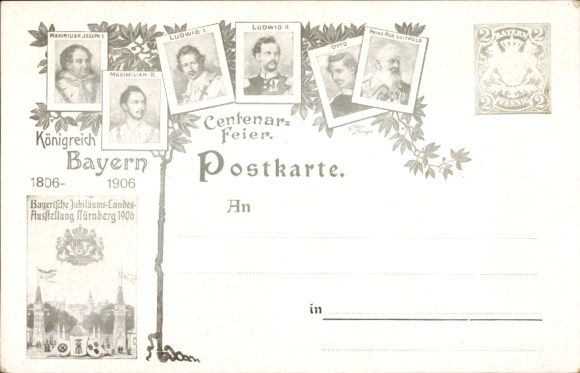 MAXIMILIAN JOSEPH I.
MAXIMILIAN II.
LUDWIG I.
LUDWIG II.
OTTO
PRINZ-REG. LUITPOLD
2 BAYERN 2
2 PFENNIG 2
Königreich
Bayern
1806- 1906
Centenar=
Feier.
Postkarte.
An
in
Bayerische Jubiläums-Landes-
Ausstellung Nürnberg 1906